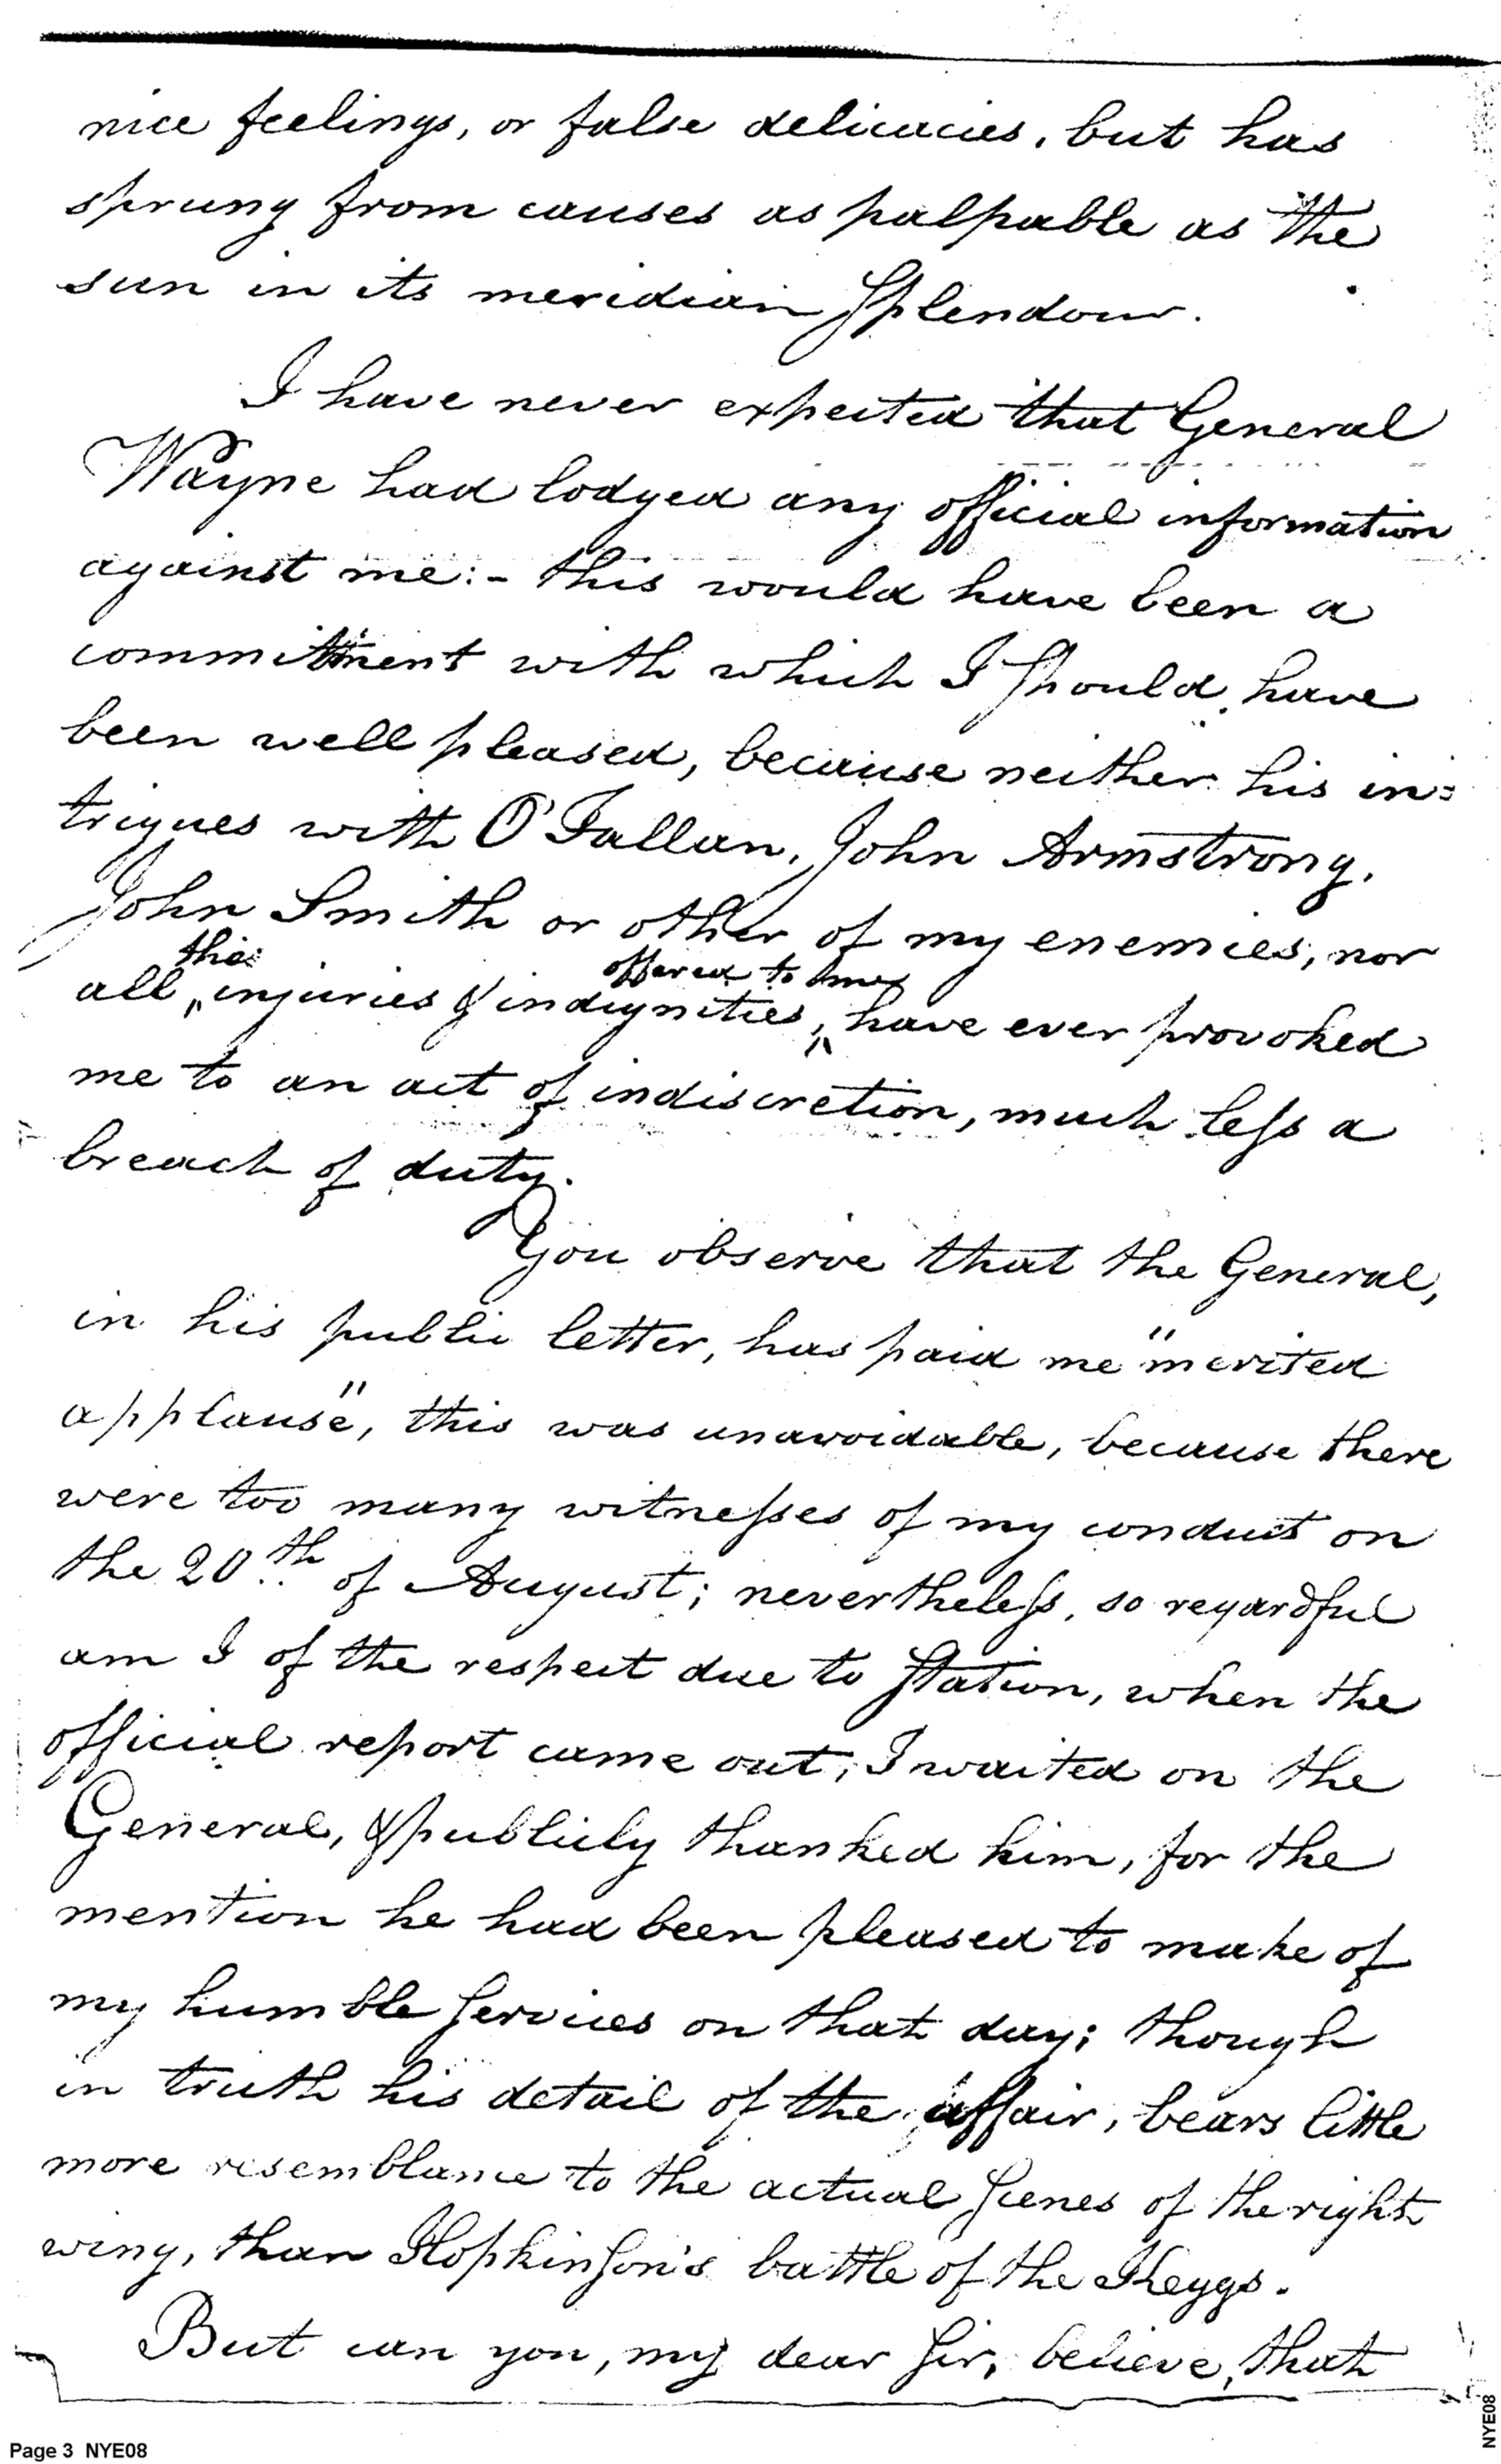 nice feelings, or false delicacies, but has
sprung from causes as palpable as the
sun in its meridian Splendour.
I have never expected that General
Wayne had lodged any official information
against me:- this would have been a
commitment with which I should have
been well pleased, because neither his in=
trigues with O'Fallan, John Armstrong,
John Smith or other of my enemies, nor
the offered to me
all injuries & indignities, have ever provoked
me to an act of indiscretion, much less a
breach of duty.
You observe that the General,
in his public letter, has paid me "merited
applause", this was unavoidable, because there
were too many witnesses of my conduct on
the 20th of August; nevertheless, so regardful
am I of the respect due to Station, when the
official report came out, I waited on the
General, & publicly thanked him, for the
mention he had been pleased to make of
my humble Services on that day; though
in truth his detail of the affair, bears little
more resemblance to the actual Scenes of the right
wing, than Hopkinson's battle of the Keggs.
But can you, my dear Sir, believe, that
Page 3 NYE08
NYE08